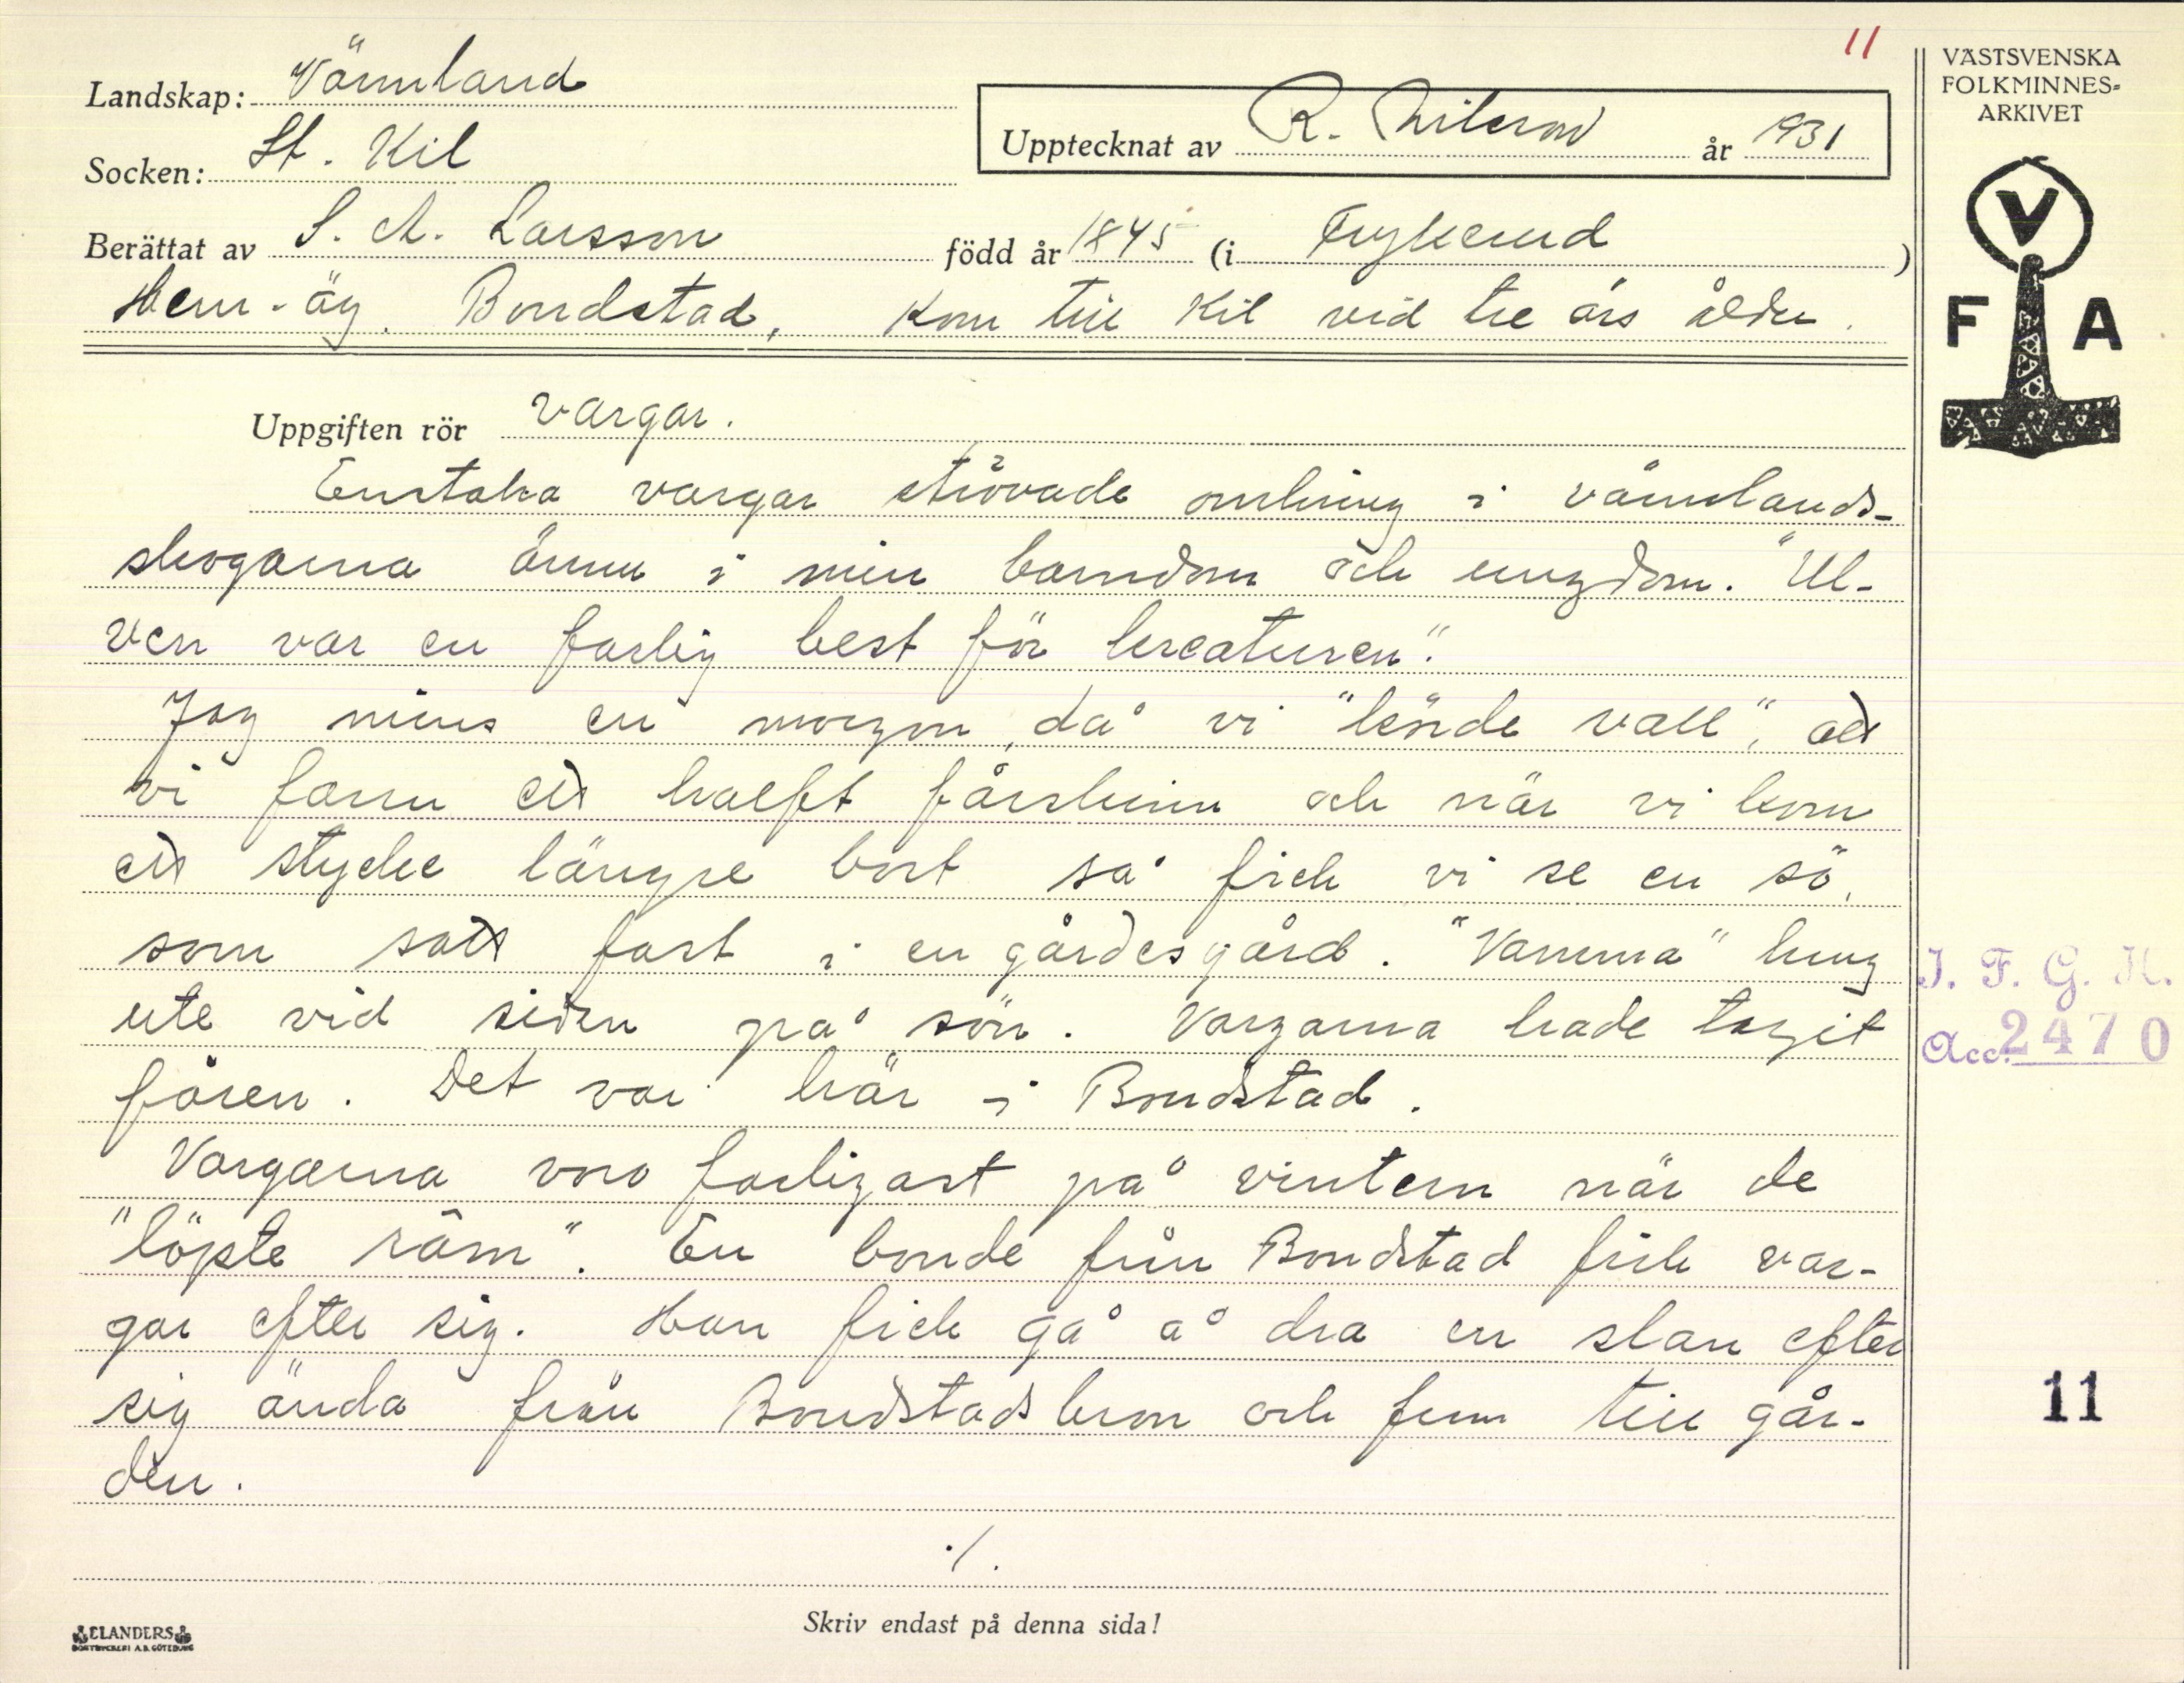 11
VÄSTSVENSKA
FOLKMINNES-
ARKIVET
Landskap: Värmland
Upptecknat av R. Nilsson år 1931
Socken: St. Kil
Berättat av S. A. Larsson född år 1845 (i Frykerud)
Hem.-äg. Bondstad, Kom till Kil vid tre års ålder.
V
F A
Uppgiften rör vargar.
Enstaka vargar strövade omkring i värmlands-
skogarna ännu i min barndom och ungdom. "Ul-
ven var en farlig best för kreaturen".
Jag minns en morgon, då vi "körde vall", att
vi fann ett halft fårskinn och när vi kom
ett stycke längre bort så fick vi se en sö,
som satt fast i en gärdesgård. "Vamma" hung
ute vid siden på sön. Vargarna hade tagit
fåren. Det var här i Bondstad.
Vargarna voro farligast på vintern när de
"löpte räm". En bonde från Bondstad fick var-
gar efter sig. Han fick gå å dra en slan efter
sig ända från Bondstadsbron och fram till går-
den.
./.
Skriv endast på denna sida!
I. F. G. H.
Acc. 2470
11
ELANDERS
BOKTRYCKERI A.B. GÖTEBORG